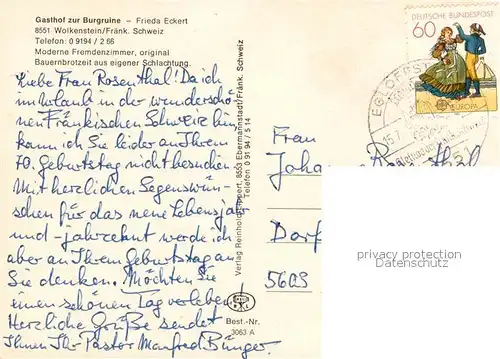 Gasthof zur Burgruine – Frieda Eckert
8551 Wolkenstein/Fränk. Schweiz
Telefon: 0 91 94 / 2 66
Moderne Fremdenzimmer, original
Bauernbrotzeit aus eigener Schlachtung.
Liebe Frau Rosenthal! Da ich
im Urlaub in der wunderschö-
nen Fränkischen Schweiz bin,
kann ich Sie leider an Ihrem
70. Geburtstag nicht besuchen
Mit herzlichen Segenswün-
schen für das neue Lebensjahr
und -jahrzehnt werde ich
aber an Ihrem Geburtstag an
Sie denken. Möchten Sie
einen schönen Tag verleben!
Herzliche Grüße sendet
Ihnen Ihr Pastor Manfred Bünger.
Verlag Reinhold 8553 Ebermannstadt/Fränk. Schweiz
Telefon 0 91 94 / 5 14
Best.-Nr.
3063 A
DEUTSCHE BUNDESPOST
60
EUROPA
EGLOFFST
15.7.
Frau
Joha
Rosenthal
Dorf
5609
privacy protection
Datenschutz